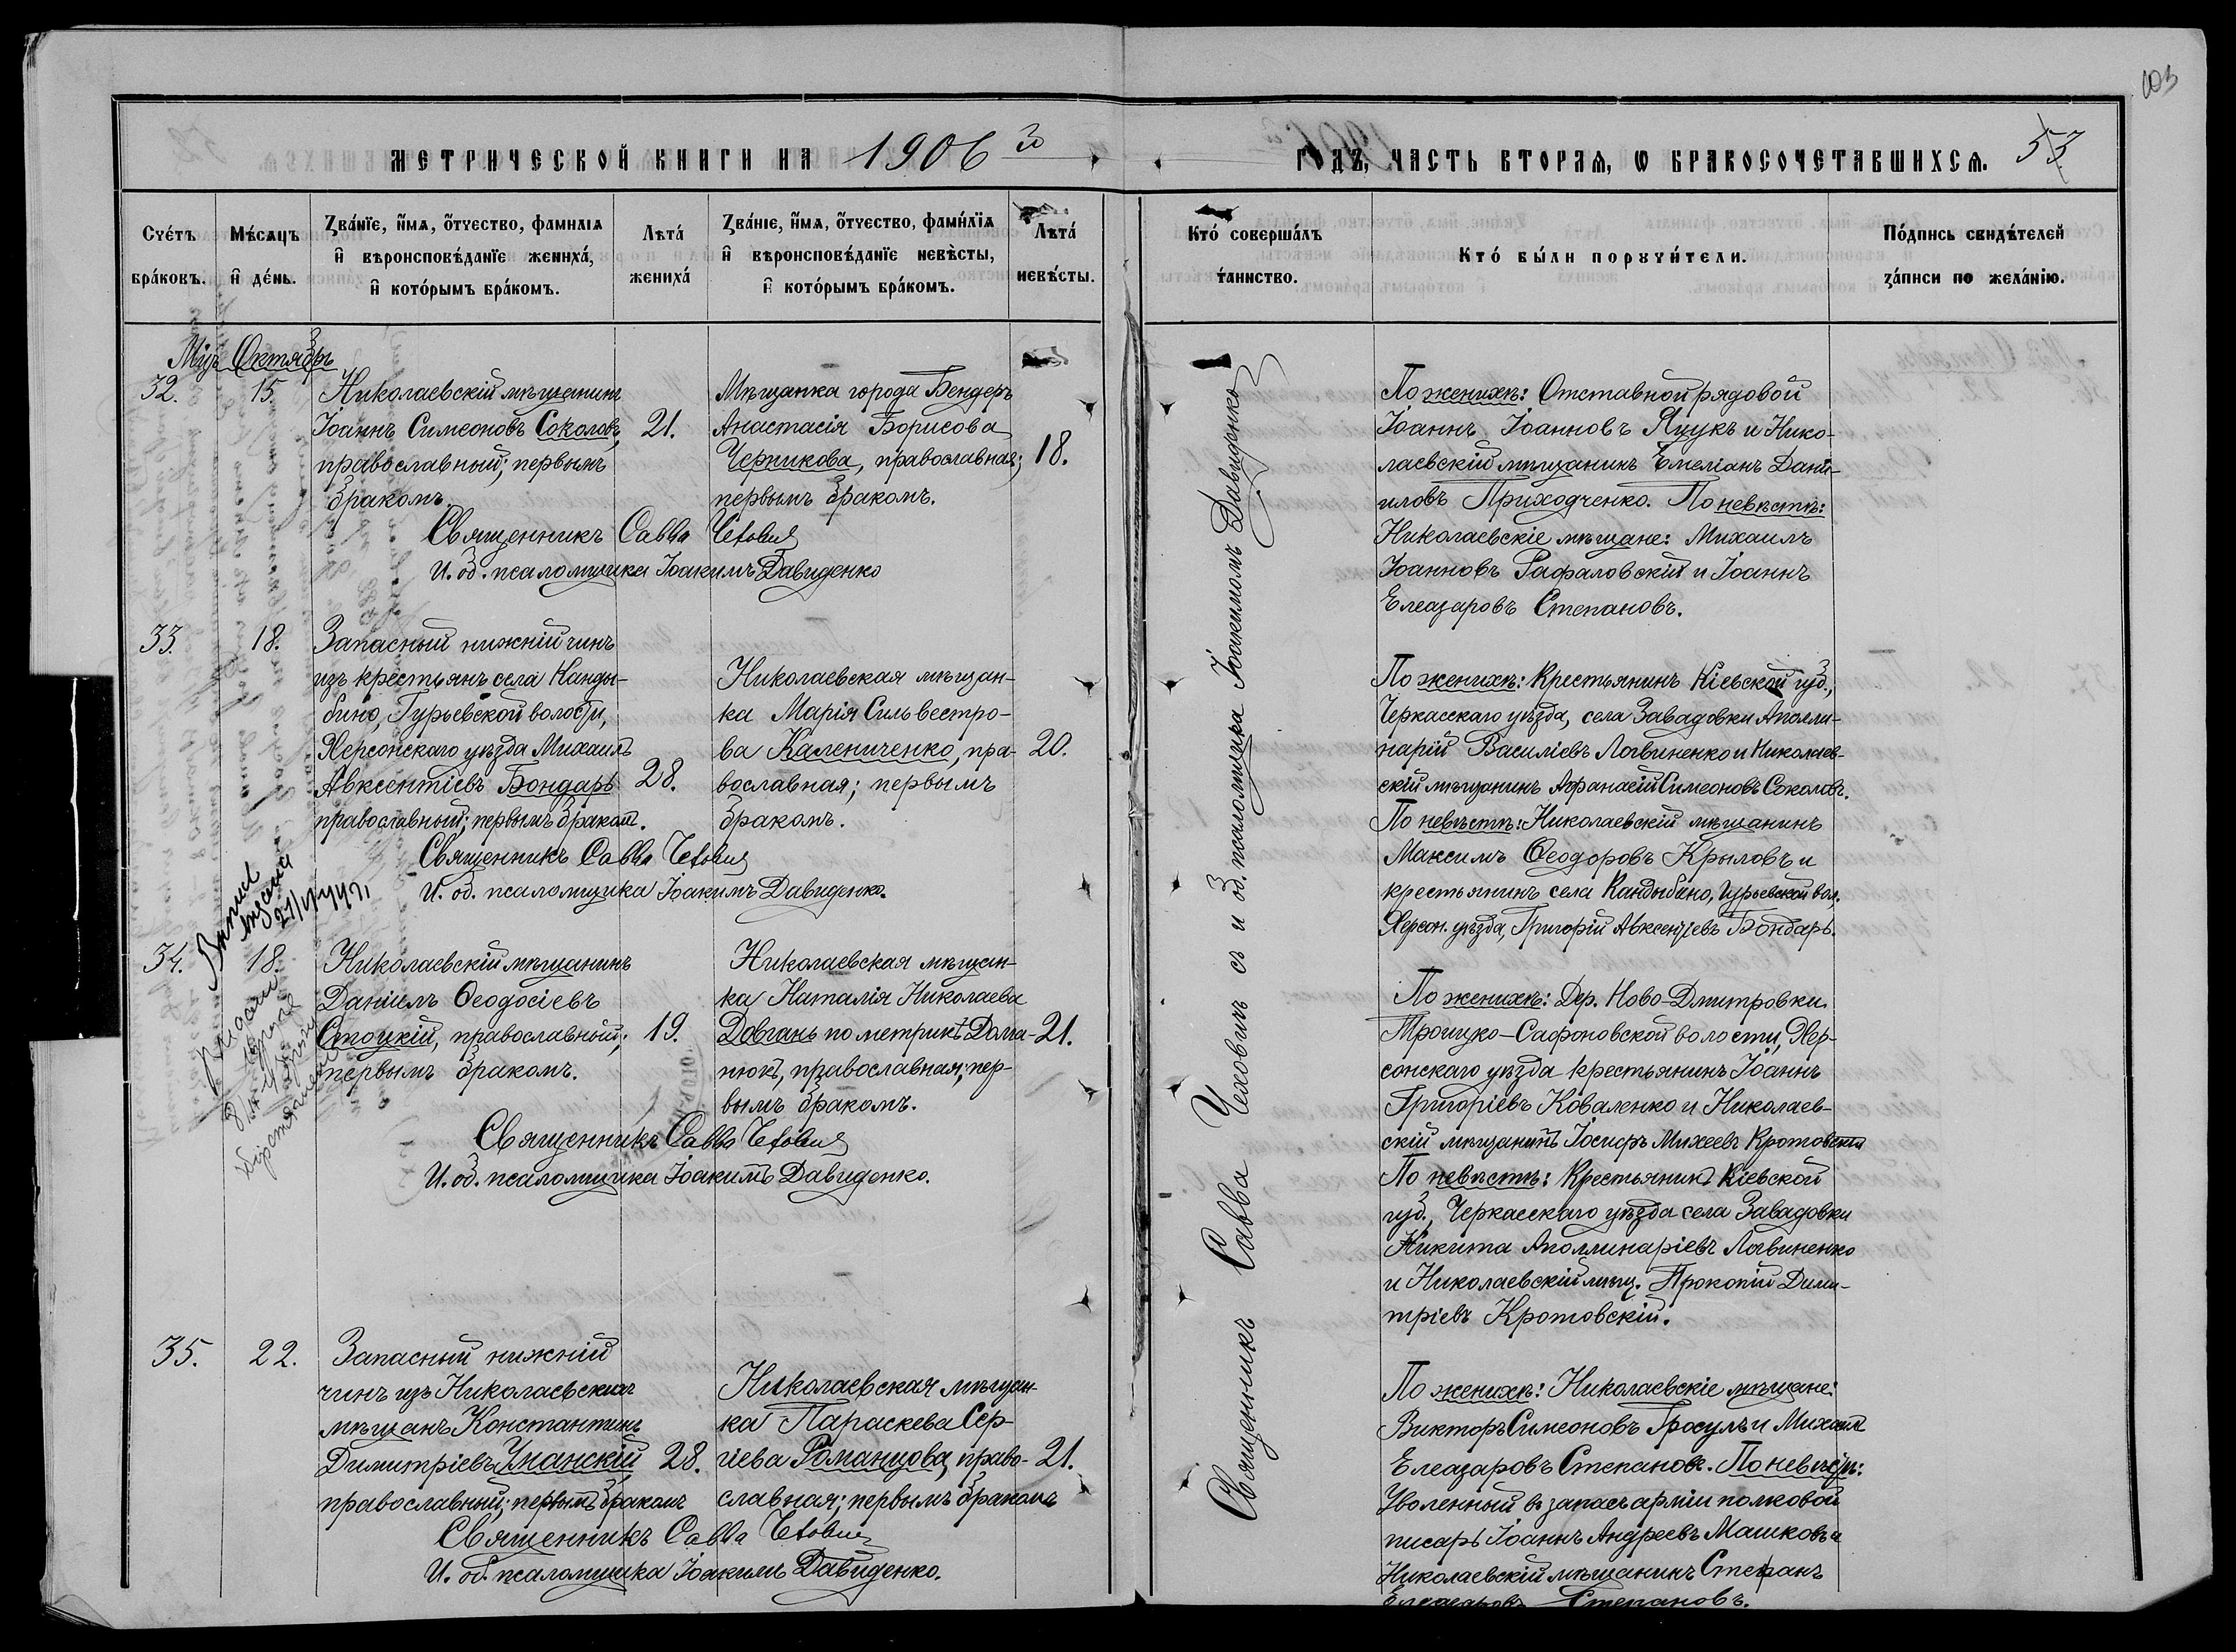 103
МЕТРИЧЕСКОЙ КНИГИ НА 1906 й ГОДЪ, ЧАСТЬ ВТОРАЯ, Ѡ БРАКОСОЧЕТАВШИХСЯ. 53
Счетъ браковъ.
Мѣсяцъ и день.
Званіе, имя, отчество, фамилія
и вѣроисповѣданіе жениха,
и которымъ бракомъ.
Лѣта
жениха
Званіе, имя, отчество, фамилія
и вѣроисповѣданіе невѣсты,
и которымъ бракомъ.
Лѣта
невѣсты.
Кто совершалъ
таинство.
Кто были поручители.
Подпись свидѣтелей
записи по желанію.
Мцъ Октябрь
32.
15.
Николаевскій мѣщанинъ
Іоаннъ Симеоновъ Соколовъ,
православный; первымъ
бракомъ.
21.
Мѣщанка города Бендеръ
Анастасія Борисова
Черникова, православная;
первымъ бракомъ.
18.
Священникъ Савва Чехович
И. об. псаломщика Іоакимъ Давиденко
По женихѣ: Отставной рядовой
Іоаннъ Іоанновъ Яцукъ и Нико-
лаевскій мѣщанинъ Емеліанъ Дані-
иловъ Приходченко. По невѣстѣ:
Николаевскіе мѣщане: Михаилъ
Іоанновъ Рафаловскій и Іоаннъ
Елеазаровъ Степановъ.
33.
18.
Запасный нижній чинъ
изъ крестьянъ села Канды-
бино, Гурьевской волости,
Херсонскаго уѣзда Михаилъ
Авксентіевъ Бондарь
православный; первымъ бракомъ.
28.
Николаевская мѣщан-
ка Марія Сильвестро-
ва Калениченко, пра-
вославная; первымъ
бракомъ.
20.
Священникъ Савва Чехович
И. об. псаломщика Іоакимъ Давиденко.
По женихѣ: Крестьянинъ Кіевской губ.,
Черкасскаго уѣзда, села Завадовки Аполли-
нарій Василіевъ Логвиненко и Николаев-
скій мѣщанинъ Афанасій Симеоновъ Соколовъ.
По невѣстѣ: Николаевскій мѣщанинъ
Максимъ Ѳеодоровъ Крыловъ и
крестьянинъ села Кандыбино, Гурьевской вол.
Херсон. уѣзда, Григорій Авксентіевъ Бондарь.
34.
18.
Николаевскій мѣщанинъ
Даніилъ Ѳеодосіевъ
Стоцкій, православный;
первымъ бракомъ.
19.
Николаевская мѣщан-
ка Наталія Николаева
Довгань по метрикѣ Долга-
нюкъ, православная; пер-
вымъ бракомъ.
21.
Священникъ Савва Чехович
И. об. псаломщика Іоакимъ Давиденко.
По женихѣ: Дер. Ново-Дмитровки
Троицко-Сафоновской волости, Хер-
сонскаго уѣзда крестьянинъ Іоаннъ
Григоріевъ Коваленко и Николаев-
скій мѣщанинъ Іосифъ Михеевъ Кротовскій
По невѣстѣ: Крестьянинъ Кіевской
губ., Черкасскаго уѣзда села Завадовки
Никита Аполлинаріевъ Логвиненко
и Николаевскій мѣщ. Прокопій Дими-
тріевъ Кротовскій.
35.
22.
Запасный нижній
чинъ изъ Николаевскихъ
мѣщанъ Константинъ
Димитріевъ Уманскій
православный; первымъ бракомъ
28.
Николаевская мѣщан-
ка Параскева Сер-
гіева Романцова, право-
славная; первымъ бракомъ
21.
Священникъ Савва Чехович
И. об. псаломщика Іоакимъ Давиденко.
По женихѣ: Николаевскіе мѣщане:
Викторъ Симеоновъ Гросулъ и Михаилъ
Елеазаровъ Степановъ. По невѣстѣ:
Уволенный въ запасъ арміи полковой
писарь Іоаннъ Андреевъ Машковъ и
Николаевскій мѣщанинъ Стефанъ
Елеазаровъ Степановъ.
Священникъ Савва Чеховичъ съ и. об. псаломщика Іоакимомъ Давиденко